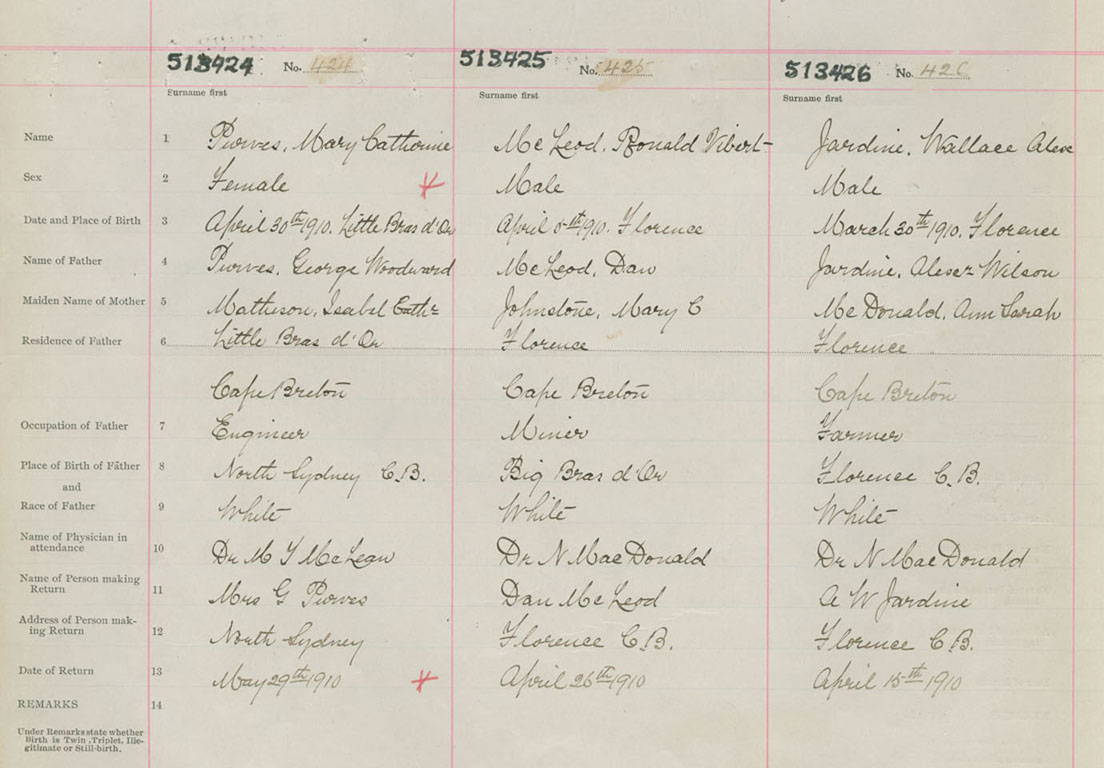 513424 No. 424 513425 No. 425 513426 No. 426
Surname first Surname first Surname first
Name 1 Purves, Mary Catherine McLeod, Ronald Vibert Jardine, Wallace Alexr
Sex 2 Female Male Male
Date and Place of Birth 3 April 30th 1910. Little Bras d'Or April 5th 1910. Florence March 30th 1910. Florence
Name of Father 4 Purves, George Woodward McLeod, Dan Jardine, Alexr Wilson
Maiden Name of Mother 5 Matheson, Isabel Cathr Johnstone, Mary C McDonald, Ann Sarah
Residence of Father 6 Little Bras d'Or Florence Florence
Cape Breton Cape Breton Cape Breton
Occupation of Father 7 Engineer Miner Farmer
Place of Birth of Father 8 North Sydney C.B. Big Bras d'Or Florence C.B.
and
Race of Father 9 White White White
Name of Physician in
attendance 10 Dr M T McLean Dr N MacDonald Dr N MacDonald
Name of Person making
Return 11 Mrs G Purves Dan McLeod A W Jardine
Address of Person mak-
ing Return 12 North Sydney Florence C.B. Florence C.B.
Date of Return 13 May 29th 1910 April 26th 1910 April 15th 1910
REMARKS 14
Under Remarks state whether
Birth is Twin, Triplet, Ille-
gitimate or Still-birth.